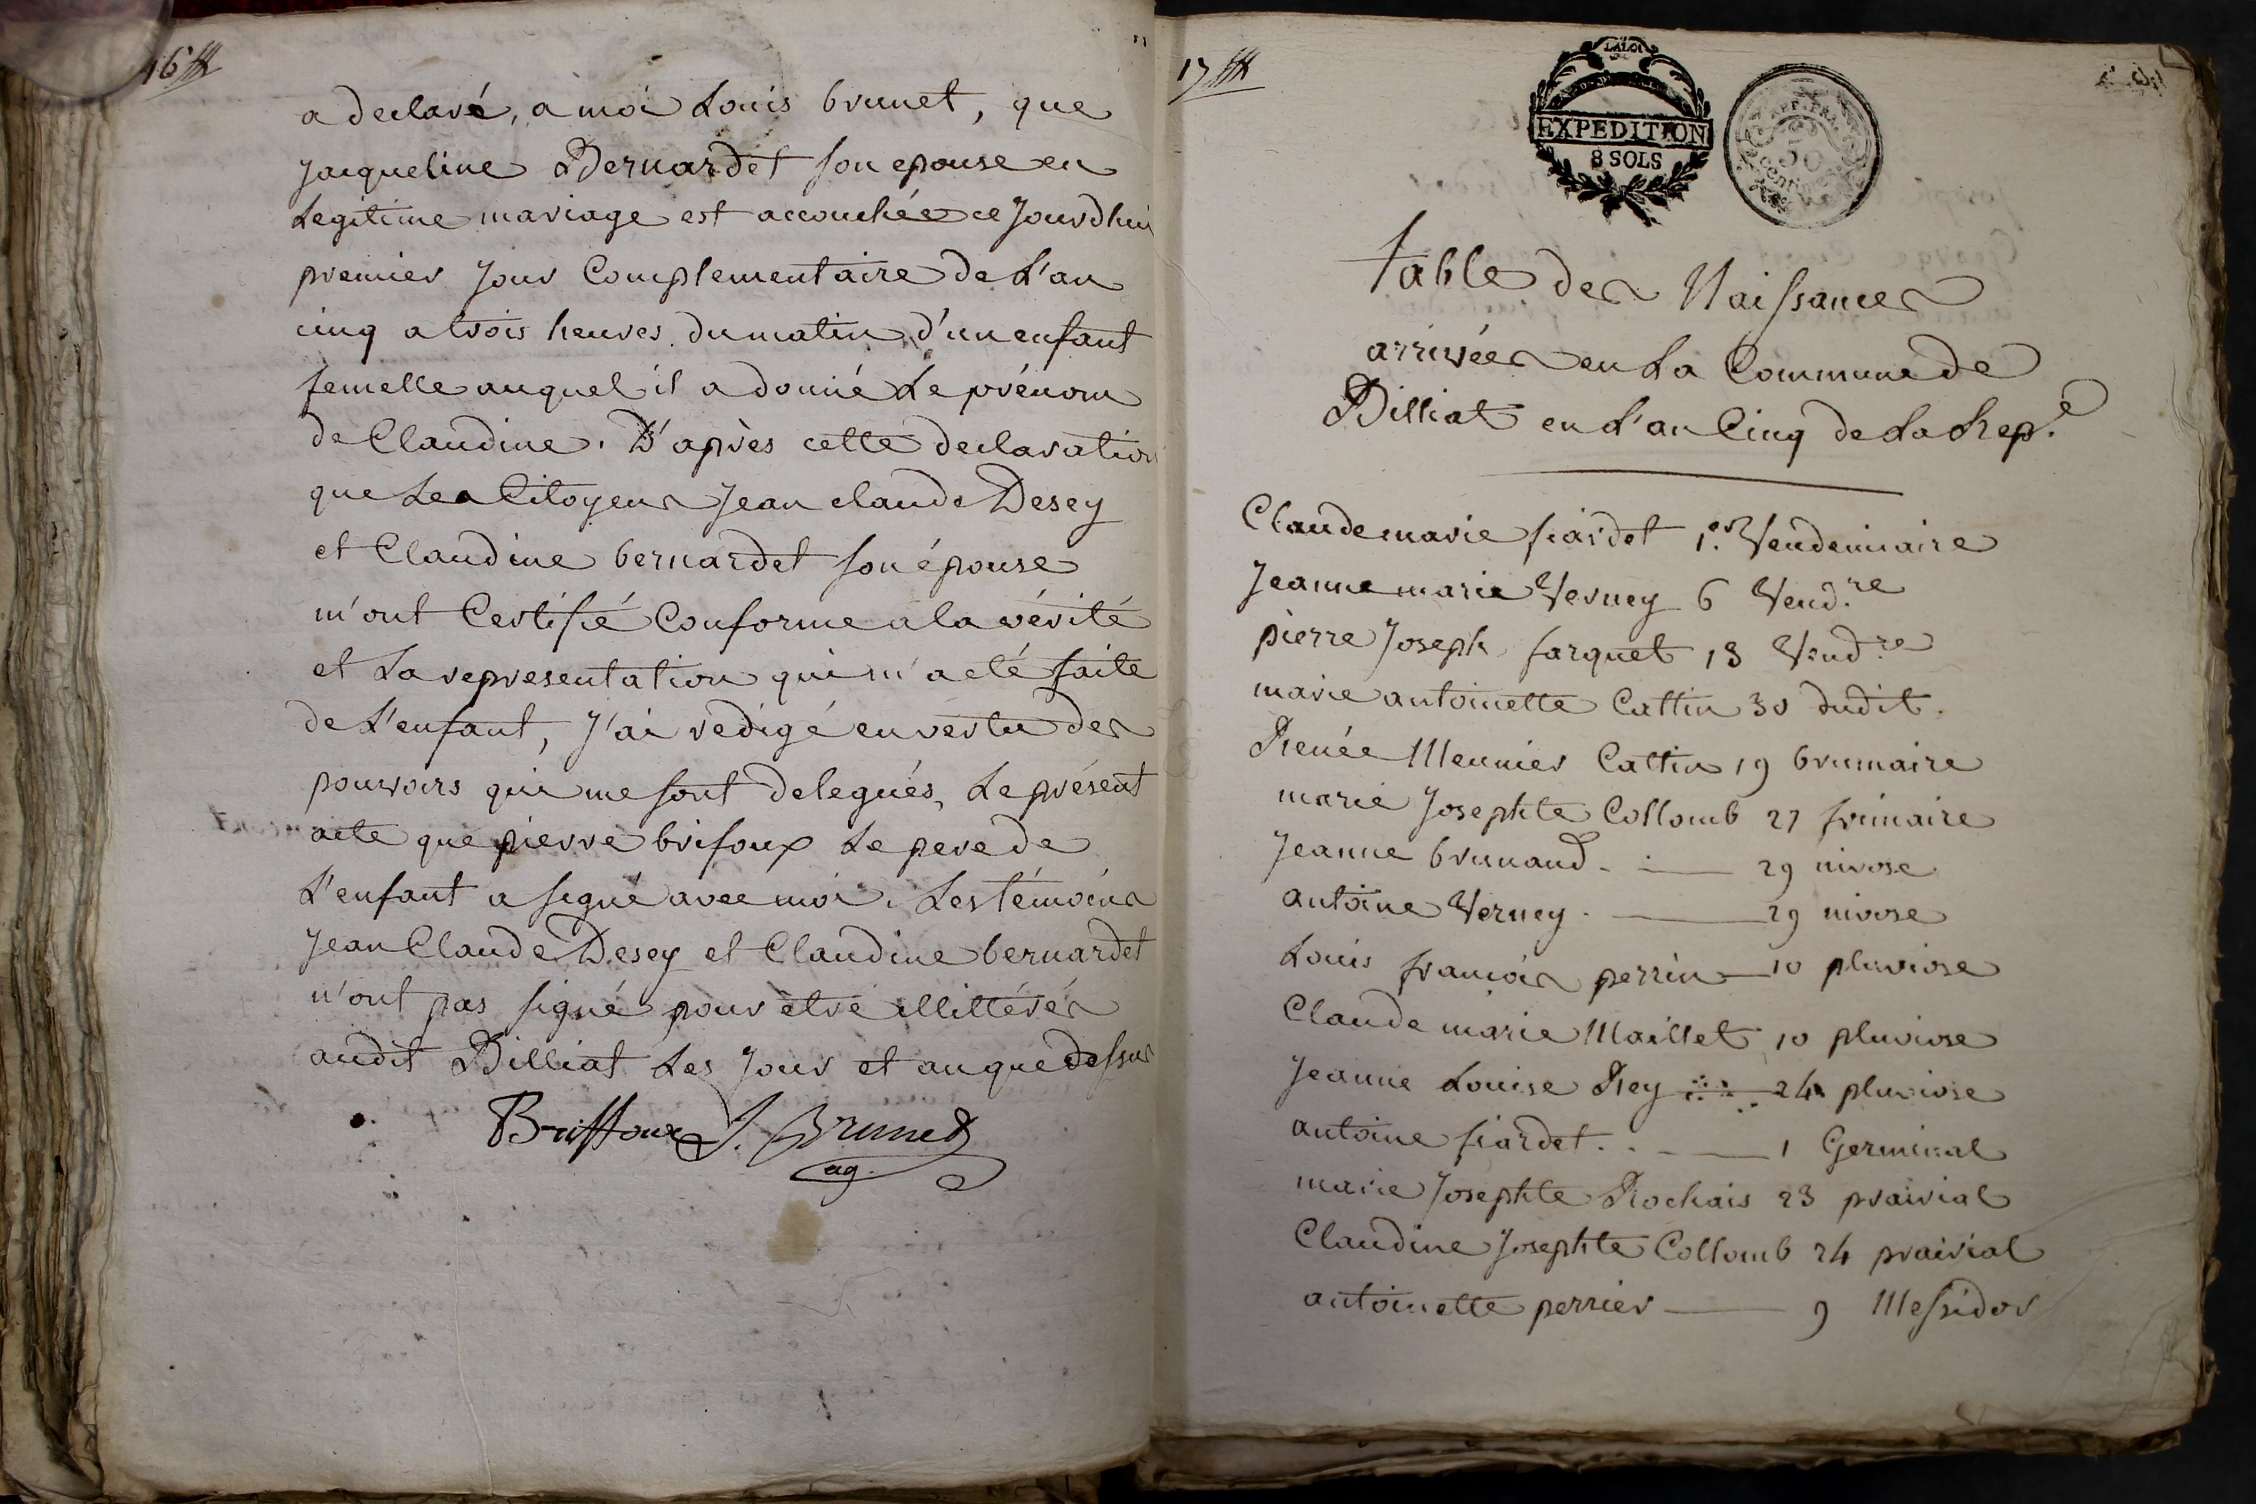 16
a declaré, a moi Louis brunet, que
Jacqueline Bernardet son epouse en
Legitime mariage est accouchée ce Jourdhui
premier Jour Complementaire de L'an
cinq a trois heures du matin d'un enfant
femelle auquel il a donné Le prénom
de Claudine. D'après cette declaration
que Les Citoyens Jean claude Desey
et Claudine bernardet son épouse
m'ont Certifié Conforme a la vérité
et La representation qui m'a eté faite
de L'enfant, J'ai redigé en vertu des
pouvoirs qui me sont delegués, Le présent
acte que pierre brifoux Le pere de
L'enfant a signé avec moi. Les témoins
Jean Claude Desey et Claudine bernardet
n'ont pas signé pour etre illittérés
audit Billiat Les Jour et an que dessus
Briffoux L. Brunet
ag.
17
LALOI
EXPEDITION
8 SOLS
REP. FRA
50
centimes
table des Naissances
arrivées en La Commune de
Billiat en L'an Cinq de La Rep.e
Claude marie fiardet 1.er Vendemiaire
Jeanne marie Verney 6 Vend.re
pierre Joseph farquet 13 Vend.re
marie antoinette Cattin 30 dudit.
Renée Meunier Cattin 19 brumaire
marie Josephte Collomb 27 frimaire
Jeanne brunaud 29 nivose
antoine Verney 29 nivose
Louis francois perrin 10 pluviose
Claude marie Maillet 10 pluviose
Jeanne Louise Rey 24 pluviose
antoine fiardet 1 Germinal
marie Josephte Rochais 23 prairial
Claudine Josephte Collomb 24 prairial
antoinette perrier 9 Messidor